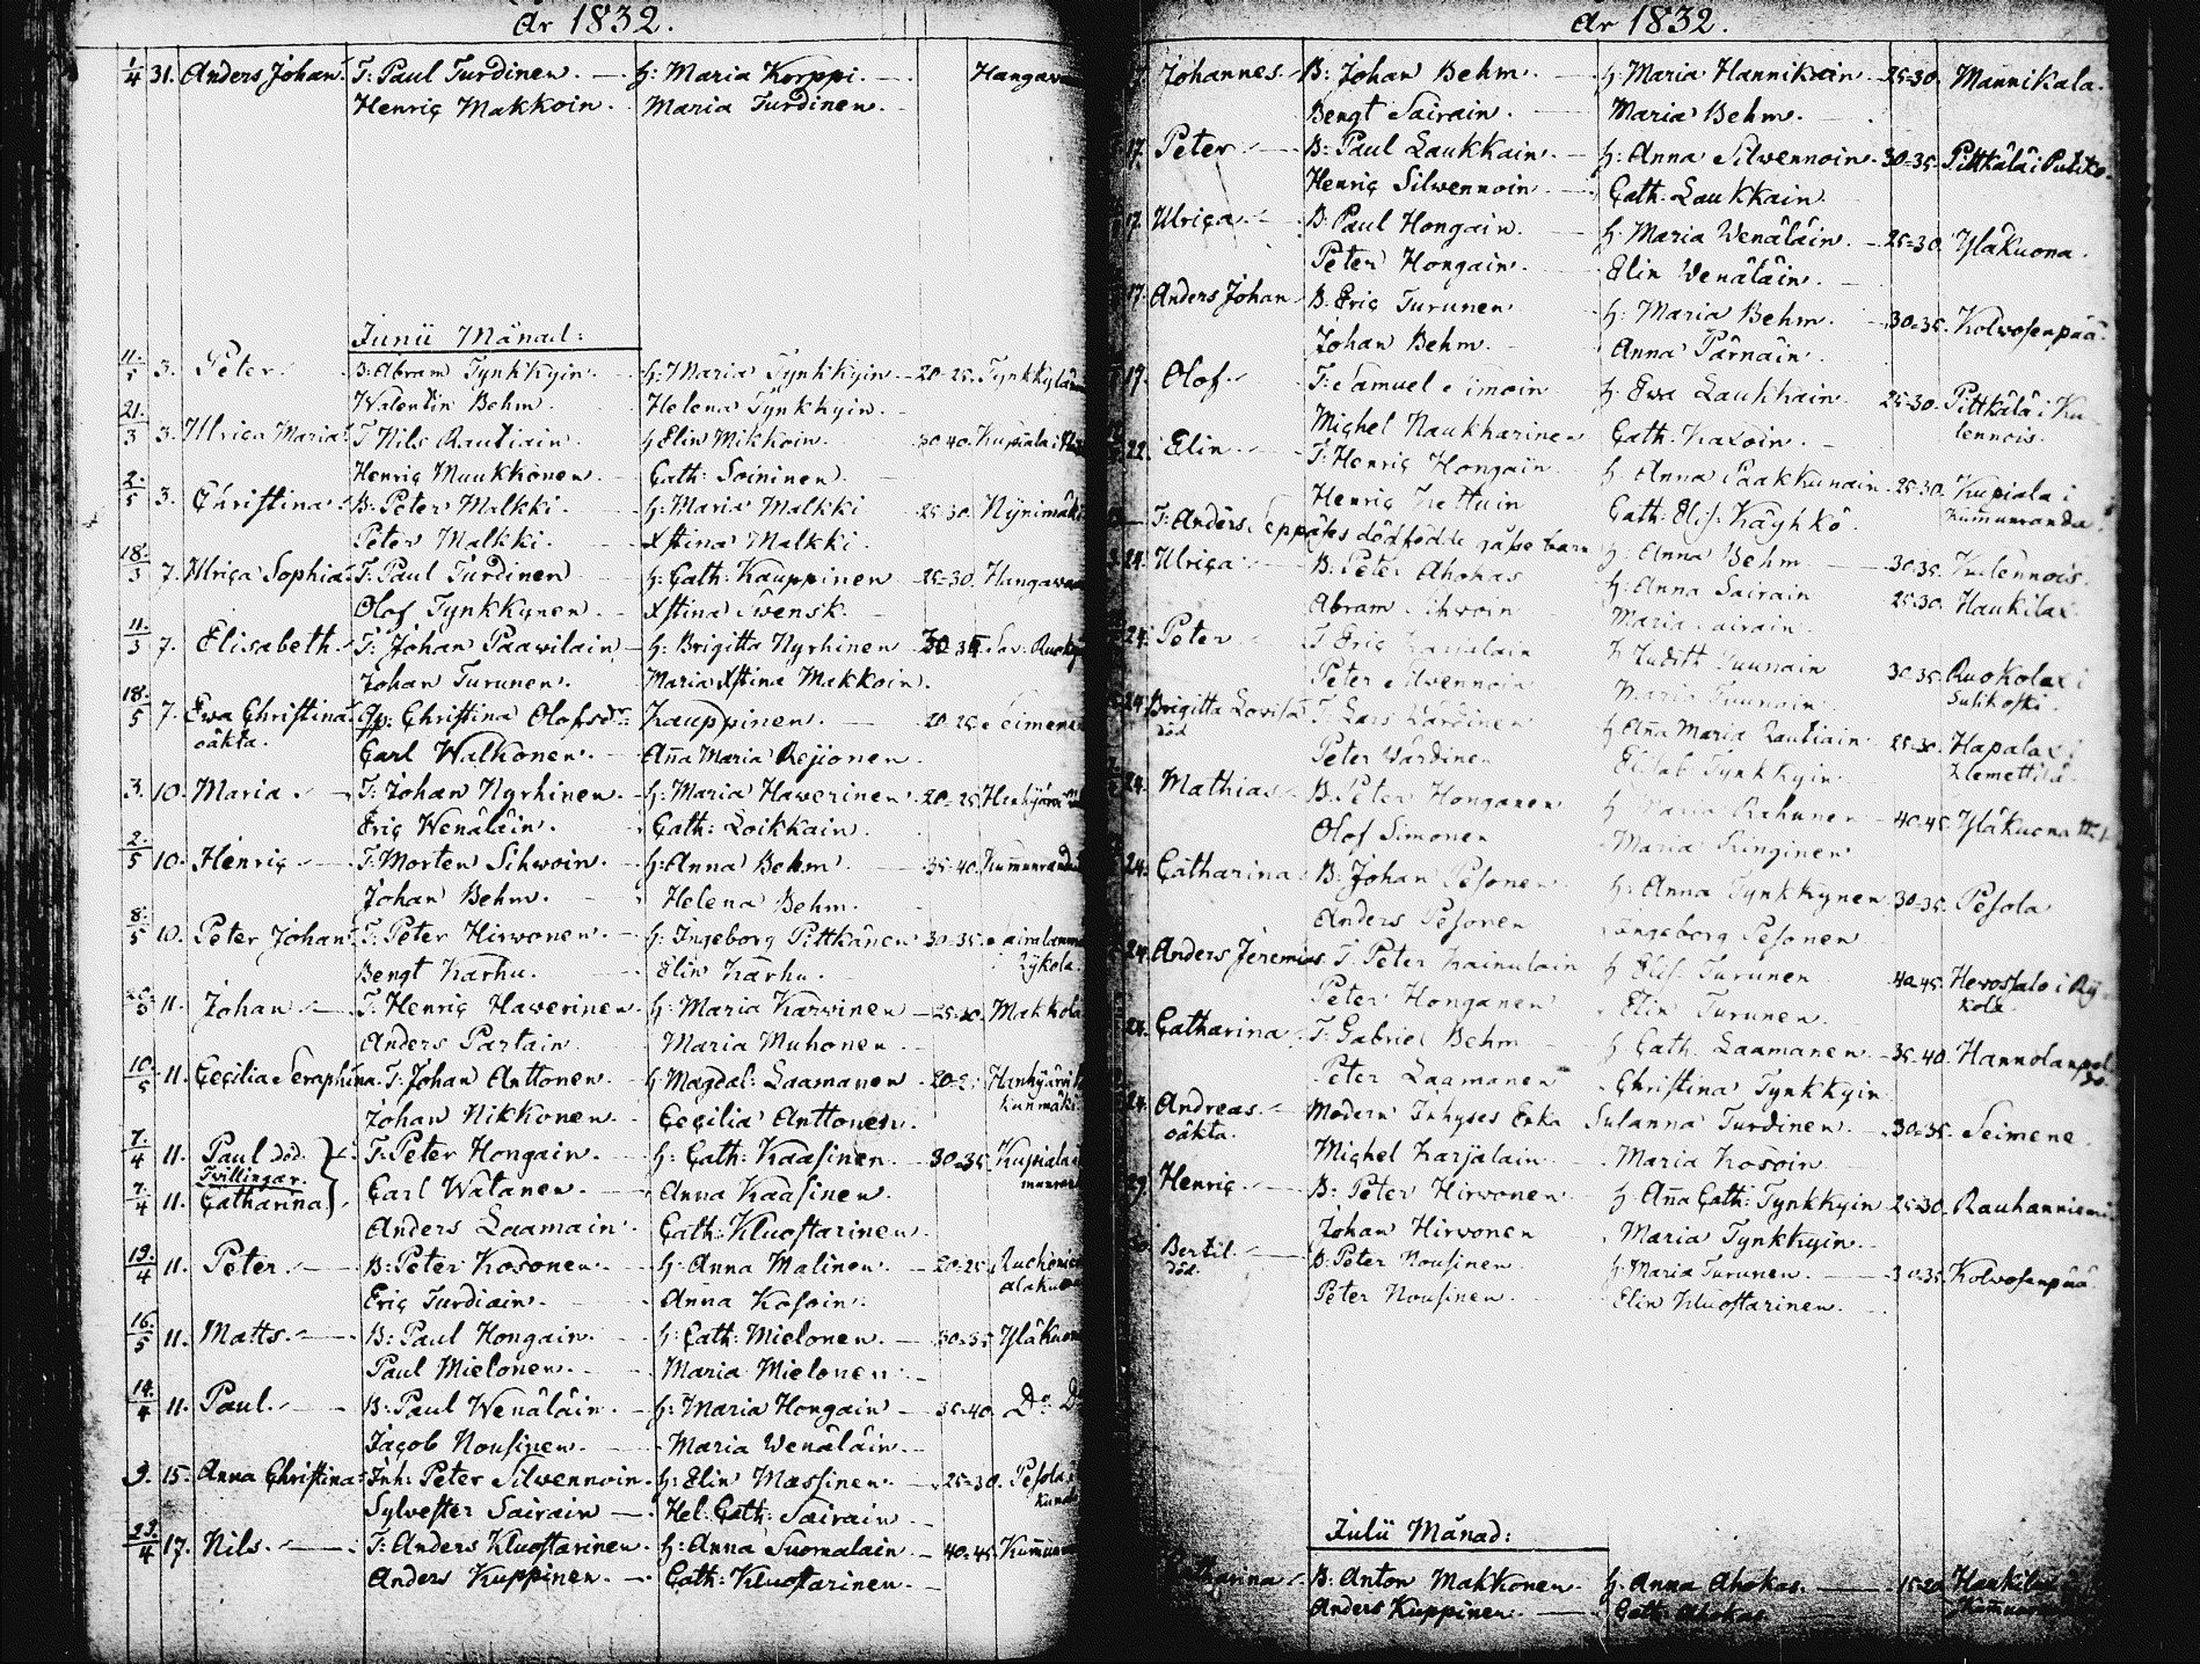 År 1832.
1/4 31. Anders Johan. T: Paul Turdinen. — H: Maria Korppi. —
Henric Makkoin. Maria Turdinen.
Junii Månad:
11./5 3. Peter. B: Abram Tynkkyin. H: Maria Tynkkyin. 20-25.
Walentin Behm. Helena Tynkkyin.
21./3 3. Ulrica Maria. T Nils Rautiain. H Elin Mikkoin. 30 40. Kupiala i
Henric Muukkonen. Cath: Soininen.
2./5 3. Christina. B: Peter Malkki. H: Maria Malkki 25 30. Nyrimäki
Peter Malkki. Xstina Malkki.
18./3 7. Ulrica Sophia. T: Paul Turdinen H: Cath: Kauppinen 25-30.
Olof Tynkkynen. Xstina Swensk
11./3 7. Elisabeth. T: Johan Paawilain H: Brigitta Nyrhinen
Johan Turunen. Maria Xstina Makkoin.
18./5 7. Ewa Christina. Christina Olofsdr. Kauppinen. 20 25.
oäkta. Carl Walkonen. Aña Maria Reijonen.
3. 10. Maria. T: Johan Nyrhinen. H: Maria Hawerinen 20-25.
Eric Wenäläin. Cath: Loikkain.
2./5 10. Henric T: Morten Sihwoin. H: Anna Behm 35-40.
Johan Behm. Helena Behm.
8./5 10. Peter Johan. T: Peter Hirwonen. H: Ingeborg Pittkänen 30-35.
Bengt Karhu. Elin Karhu. Rykola.
11. Johan T: Henric Hawerinen. H: Maria Karwinen 25-30. Makkola
Anders Partain. Maria Muhonen.
10./5 11. Cecilia Seraphina. T: Johan Anttonen. H: Magdal: Laamanen
Johan Nikkonen. Cecilia Anttonen.
7./4 11. Paul död. T: Peter Hongain. H: Cath: Kaasinen. 30-35.
Tvillingar.
7./4 11. Catharina Carl Watanen. Anna Kaasinen.
Anders Laamain. Cath: Kluostarinen.
19./4 11. Peter. B: Peter Kosonen. H: Anna Malinen. 20-25.
Eric Turdiain. Anna Kosoin.
16./5 11. Matts. B: Paul Hongain. H: Cath: Mielonen. 30-35
Paul Mielonen. Maria Mielonen.
14./4 11. Paul. B: Paul Wenäläin. H: Maria Hongain 35-40. Do
Jacob Nousinen. Maria Wenäläin.
9. 15. Anna Christina. Inh: Peter Silwennoin. H: Elin Massinen. 25-30.
Sylvester Sairain Hel: Cath: Sairain
29./4 17. Nils. T: Anders Kluostarinen. H: Anna Suomalain. 40-45.
Anders Kuppinen. Cath: Kluostarinen.
År 1832.
Johannes. B: Johan Behm. H: Maria Hannikain 25-30. Mannikala.
Bengt Sairain. Maria Behm.
17. Peter B: Paul Laukkain. H: Anna Silwennoin. 30-35.
Henric Silwennoin Cath: Laukkain.
17. Ulrica. B: Paul Hongain. H: Maria Wenäläin. 25-30. Yläkuona.
Peter Hongain. Elin Wenäläin.
17. Anders Johan B: Eric Turunen H: Maria Behm. 30-35. Kolwosenpää.
Johan Behm. Anna Pärnäin.
17. Olof. T: Samuel Simoin H: Ewa Laukkain 25-30. Pittkälä i Ku-
Michel Naukkarinen Cath: lennois.
22. Elin T: Henric Hongain H: Anna Paakkunain 25-30. Kupiala i
Henric Cath: Elis: Käyhkö.
T: Anders Seppäles dödfödde H: Anna Behm 30-35. Kulennois.
24. Ulrica B: Peter Ahokas H: Anna Sairain 25-30. Haukilax.
Abram Sihwoin Maria Sairain.
24. Peter T Eric H Judith Tuunain 30-35. Ruokolax i
Peter Silwennoin Maria Tuunain Sulikoski.
24. Brigitta Lovisa T: Lars Wardinen H Aña Maria Rautiain 25-30. Hapalax i
död Peter Wardinen Elisab Tynkkyin Klemettilä.
24. Mathias B: Peter Honganen H Maria Rahunen 40-45. Yläkuona
Olof Simonen Maria
24. Catharina B: Johan Pesonen H: Anna Tynkkynen 30-35. Pesola
Anders Pesonen Ingeborg Pesonen
24. Anders Jeremias T: Peter Kainulain H Elis: Turunen 40-45.
Peter Honganen Elin Turunen.
24. Catharina T: Gabriel Behm H Cath. Laamanen 35-40.
Peter Laamanen Christina Tynkkyin
24. Andreas. Modern Inhyses Enka Susanna Turdinen. 30-35. Seimene
oäkta. Michel Karjalain Maria Kosoin
29. Henric B: Peter Hirwonen H Aña Cath: Tynkkyin 25-30. Rauhanniemi
Johan Hirvonen Maria Tynkkyin.
30. Bertil. B: Peter Nousinen H: Maria Turunen. 30-35. Kolvosenpää
död. Peter Nousinen. Elin Kluostarinen.
Julii Månad:
Catharina B: Anton Makkonen. H: Anna Ahokas. 15-20.
Anders Kuppinen. Cath: Ahokas